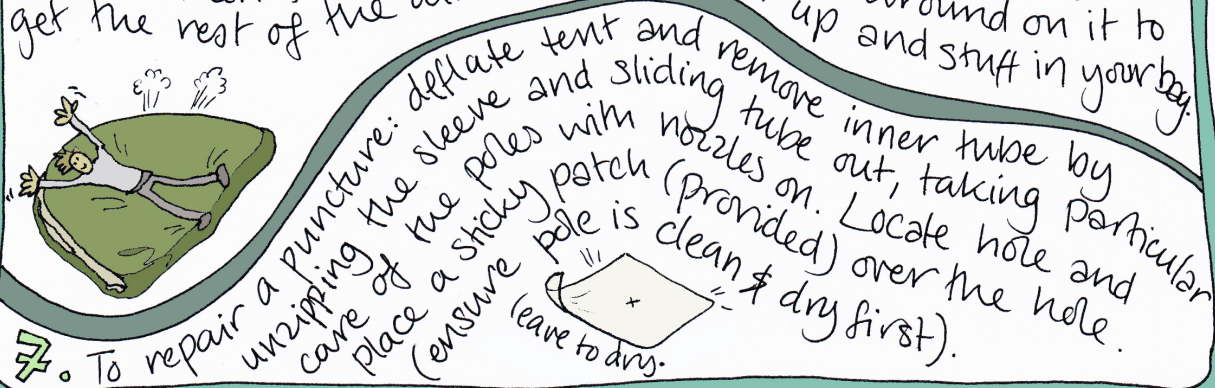 get the rest of the
around on it to
up and stuff in your bag.
7. To repair a puncture: deflate tent and remove inner tube by
unzipping the sleeve and sliding tube out, taking particular
care of the poles with nozzles on. Locate hole and
place a sticky patch (provided) over the hole.
(ensure pole is clean & dry first).
leave to dry.